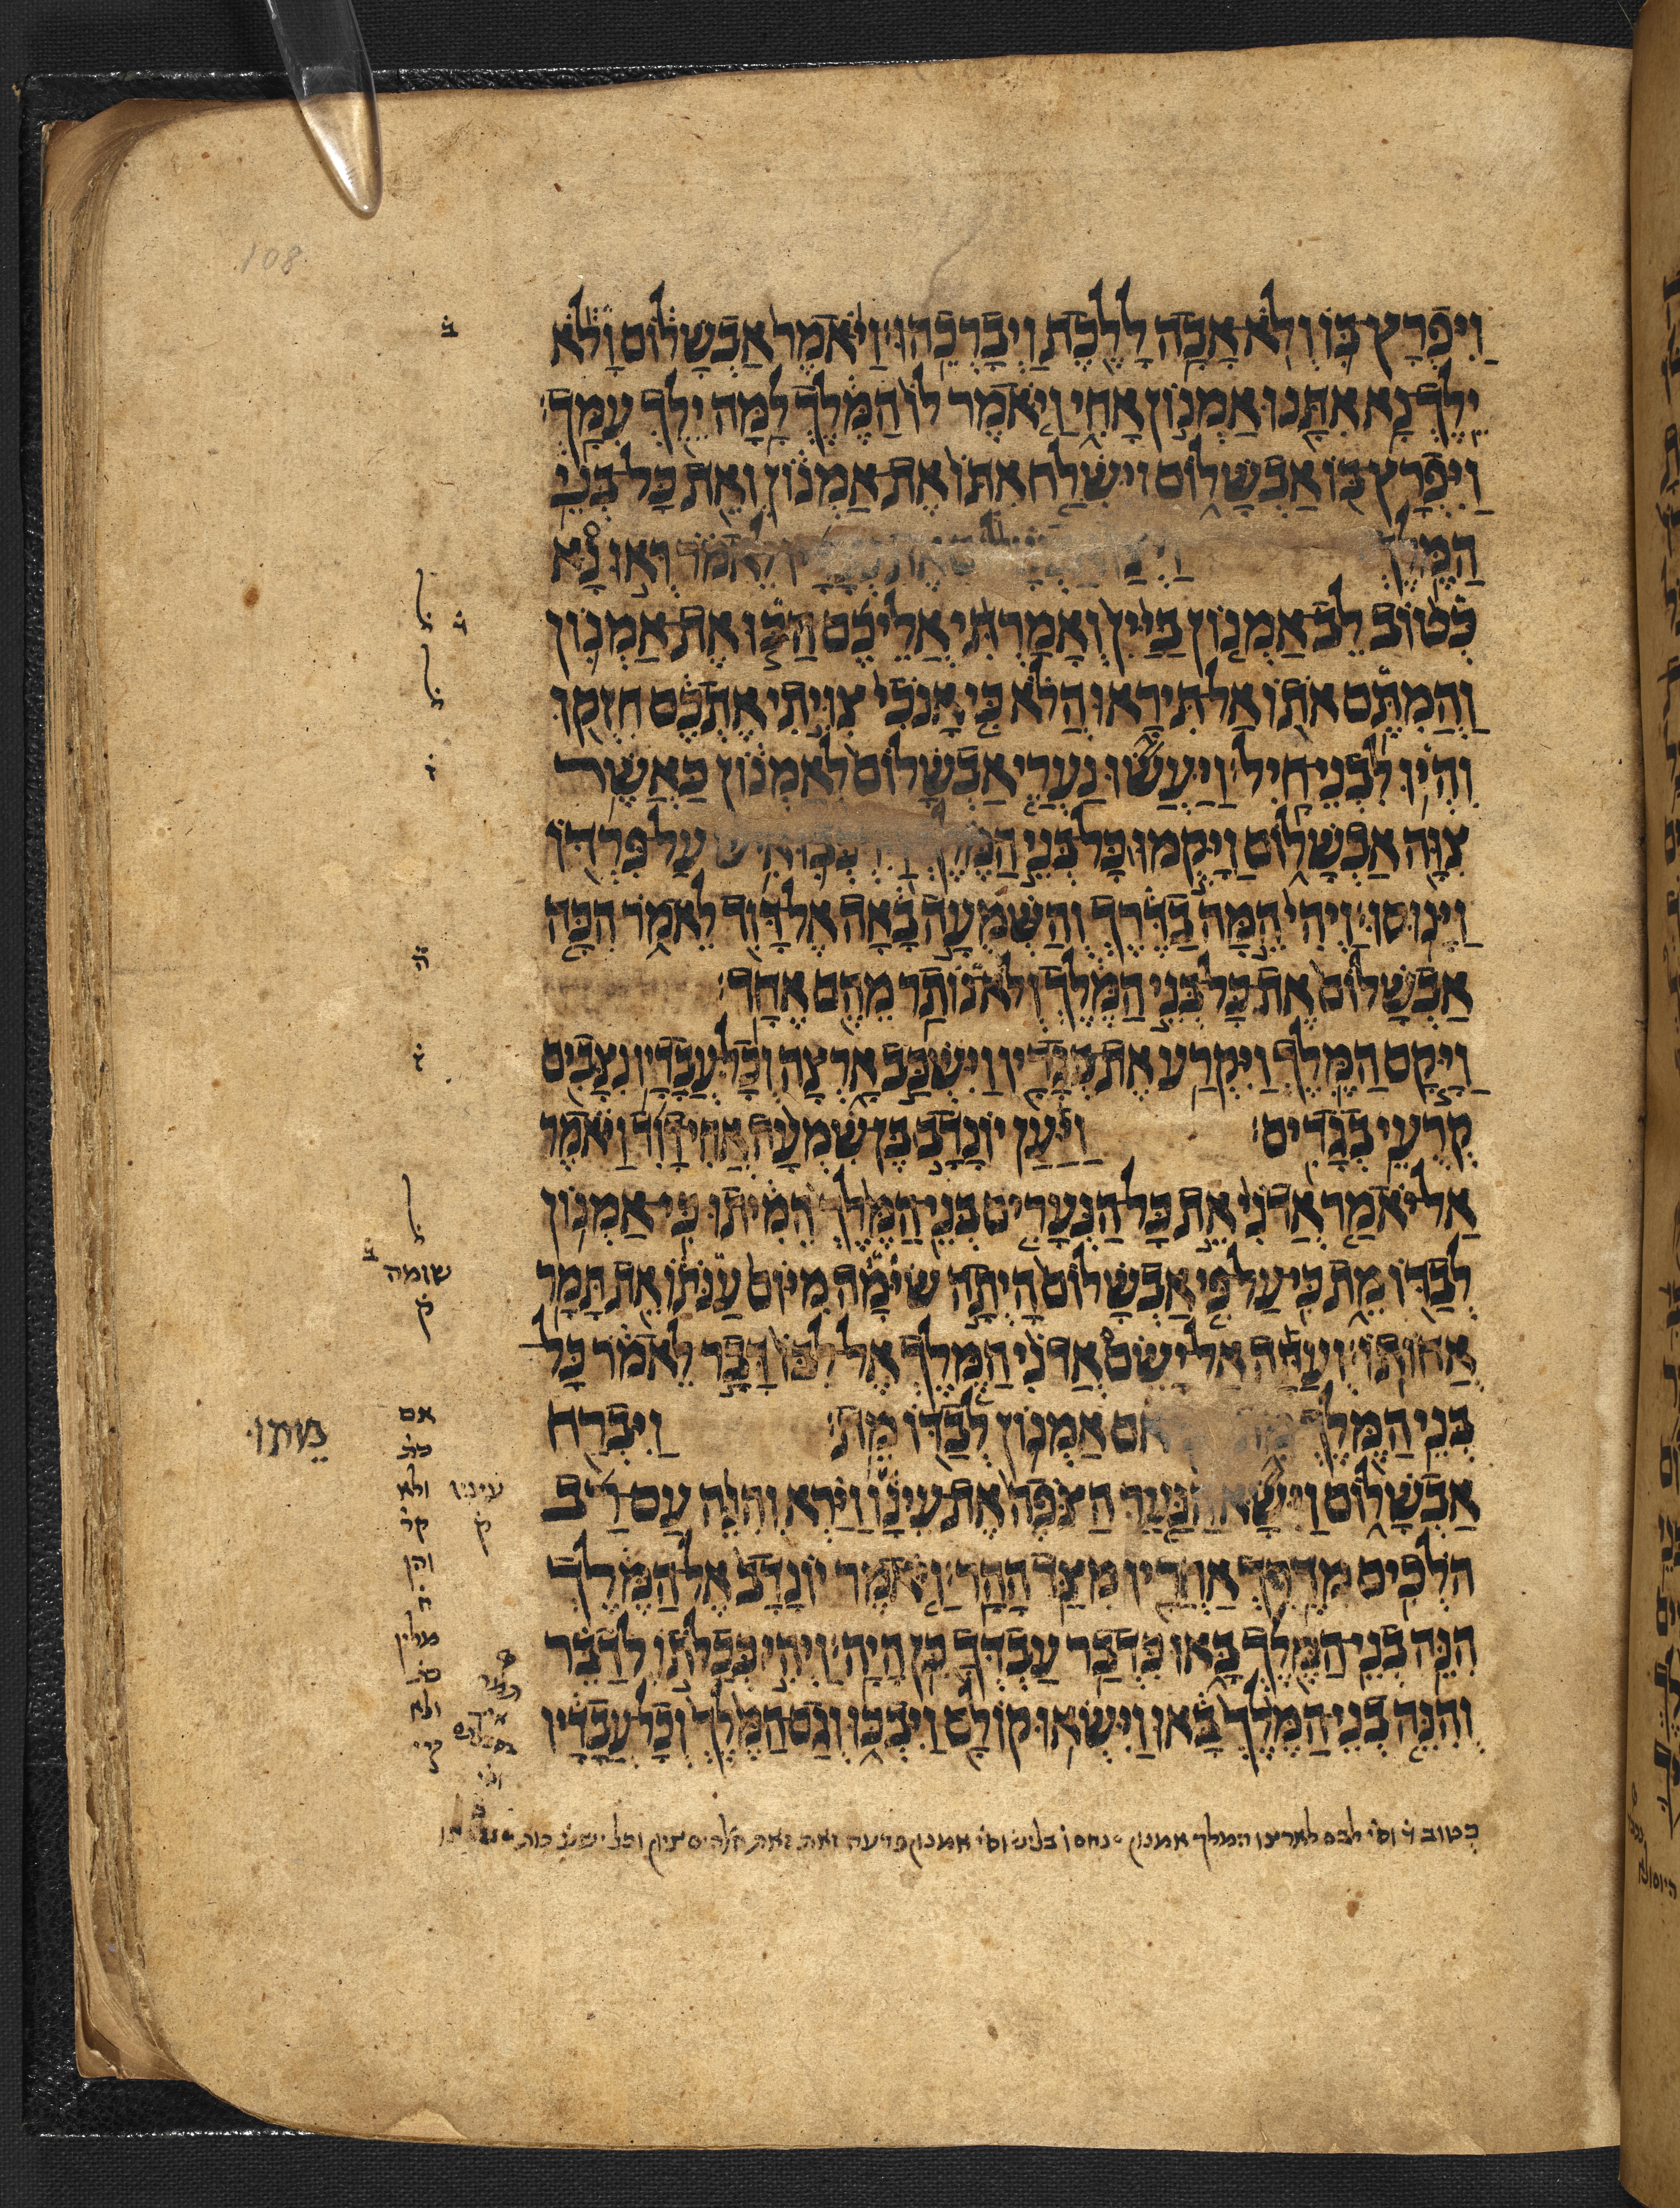 108
וַיִּפְרָץ בּוֹ וְלֹא אָבָה לָלֶכֶת וַיְבָרְכֵהוּ׃ וַיֹּאמֶר אַבְשָׁלוֹם וָלֹא
יֵלֶךְ נָא אִתָּנוּ אַמְנוֹן אָחִי וַיֹּאמֶר לוֹ הַמֶּלֶךְ לָמָּה יֵלֵךְ עִמָּךְ׃
וַיִּפְרָץ בּוֹ אַבְשָׁלוֹם וַיִּשְׁלַח אִתּוֹ אֶת אַמְנוֹן וְאֵת כָּל בְּנֵי
הַמֶּלֶךְ לֵאמֹר רְאוּ נָא
כְּטוֹב לֵב אַמְנוֹן בַּיַּיִן וְאָמַרְתִּי אֲלֵיכֶם הַכּוּ אֶת אַמְנוֹן
וַהֲמִתֶּם אֹתוֹ אַל תִּירָאוּ הֲלֹא כִּי אָנֹכִי צִוִּיתִי אֶתְכֶם חִזְקוּ
וִהְיוּ לִבְנֵי חָיִל׃ וַיַּעֲשׂוּ נַעֲרֵי אַבְשָׁלוֹם לְאַמְנוֹן כַּאֲשֶׁר
צִוָּה אַבְשָׁלוֹם וַיָּקֻמוּ כָּל בְּנֵי הַמֶּלֶךְ וַיִּרְכְּבוּ אִישׁ עַל פִּרְדּוֹ
וַיָּנוּסוּ׃ וַיְהִי הֵמָּה בַדֶּרֶךְ וְהַשְּׁמֻעָה בָאָה אֶל דָּוִד לֵאמֹר הִכָּה
אַבְשָׁלוֹם אֶת כָּל בְּנֵי הַמֶּלֶךְ וְלֹא נוֹתַר מֵהֶם אֶחָד׃
וַיָּקָם הַמֶּלֶךְ וַיִּקְרַע אֶת בְּגָדָיו וַיִּשְׁכַּב אָרְצָה וְכָל עֲבָדָיו נִצָּבִים
קְרֻעֵי בְגָדִים׃ וַיַּעַן יוֹנָדָב בֶּן שִׁמְעָה אֲחִי דָוִד וַיֹּאמֶר
אַל יֹאמַר אֲדֹנִי אֵת כָּל הַנְּעָרִים בְּנֵי הַמֶּלֶךְ הֵמִיתוּ כִּי אַמְנוֹן
לְבַדּוֹ מֵת כִּי עַל פִּי אַבְשָׁלוֹם הָיְתָה שִׂימָה מִיּוֹם עַנֹּתוֹ אֵת תָּמָר
אֲחוֹתוֹ׃ וְעַתָּה אַל יָשֵׂם אֲדֹנִי הַמֶּלֶךְ אֶל לִבּוֹ דָּבָר לֵאמֹר כָּל
בְּנֵי הַמֶּלֶךְ אִם אַמְנוֹן לְבַדּוֹ מֵת׃ וַיִּבְרַח
אַבְשָׁלוֹם וַיִּשָּׂא הַנַּעַר הַצֹּפֶה אֶת עֵינָו וַיַּרְא וְהִנֵּה עַם רַב
הֹלְכִים מִדֶּרֶךְ אַחֲרָיו מִצַּד הָהָר׃ וַיֹּאמֶר יוֹנָדָב אֶל הַמֶּלֶךְ
הִנֵּה בְנֵי הַמֶּלֶךְ בָּאוּ כִּדְבַר עַבְדְּךָ כֵּן הָיָה׃ וַיְהִי כְּכַלֹּתוֹ לְדַבֵּר
וְהִנֵּה בְנֵי הַמֶּלֶךְ בָּאוּ וַיִּשְׂאוּ קוֹלָם וַיִּבְכּוּ וְגַם הַמֶּלֶךְ וְכָל עֲבָדָיו
ב
ל
ל
שומה
ק
אם
כת
ולא
קר
והן
ח
מלין
עיניו
ק